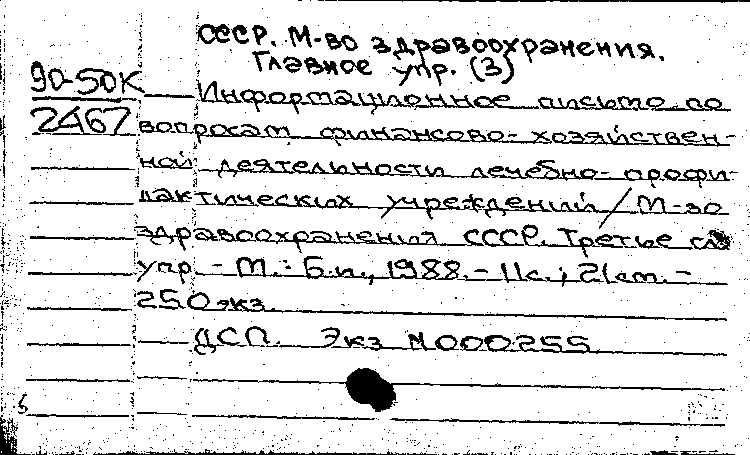 СССР. М-во здравоохранения.
Главное упр. (3)
90-50К
Информационное письмо по
2467 вопросам финансово-хозяйствен-
ной деятельности лечебно-профи-
лактических учреждений / М-во
здравоохранения СССР. Третье гл.
упр. - М.: Б.и., 1988. - 11с.; 21см. -
250 экз.
ДСП. Экз N 000255